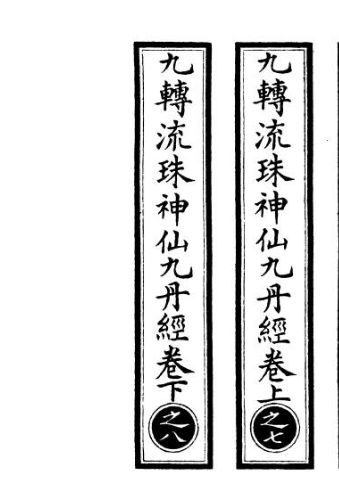 九轉流珠神仙九丹經卷上
之七
九轉流珠神仙九丹經卷下
之八